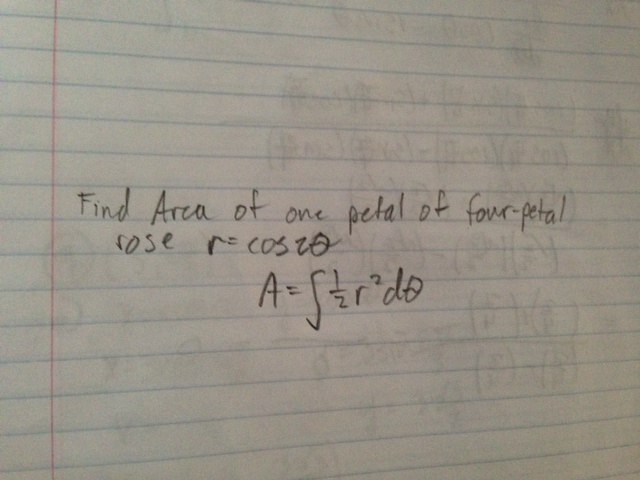 Find Area of one petal of four-petal
rose r=cos2θ
A=∫½r²dθ